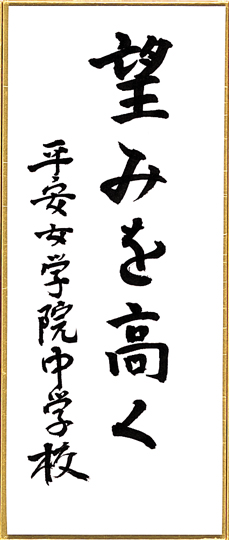 望みを高く
平安女学院中学校